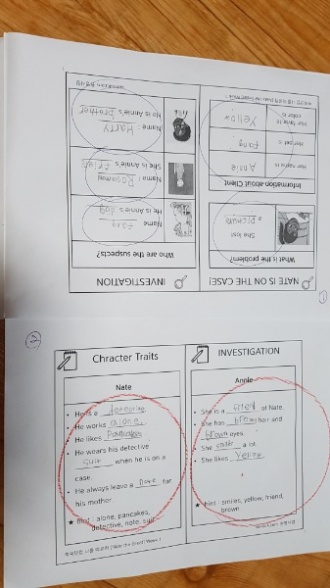 ①
NATE IS ON THE CASE!
What is the problem?
She lost
a picture
Information about Client
Her name is
Annie
Her pet is
Fang
Her favorite color is
Yellow
INVESTIGATION
Who are the suspects?
Name : Fang
He is Annie's dog
Name : Rosamond
She is Annie's friend
Name : Harry
He is Annie's brother
②
Chracter Traits
Nate
He is a detective
He works alone.
He likes Pancakes
He wears his detective
suit when he is on a
case.
He always leave a note for
his mother.
★ Hint : alone, pancakes,
detective, note, suit
INVESTIGATION
Annie
She is a friend of Nate.
She has brown hair and
brown eyes.
She smiles a lot.
She likes Yellow.
★ Hint : smiles, yellow, friend,
brown